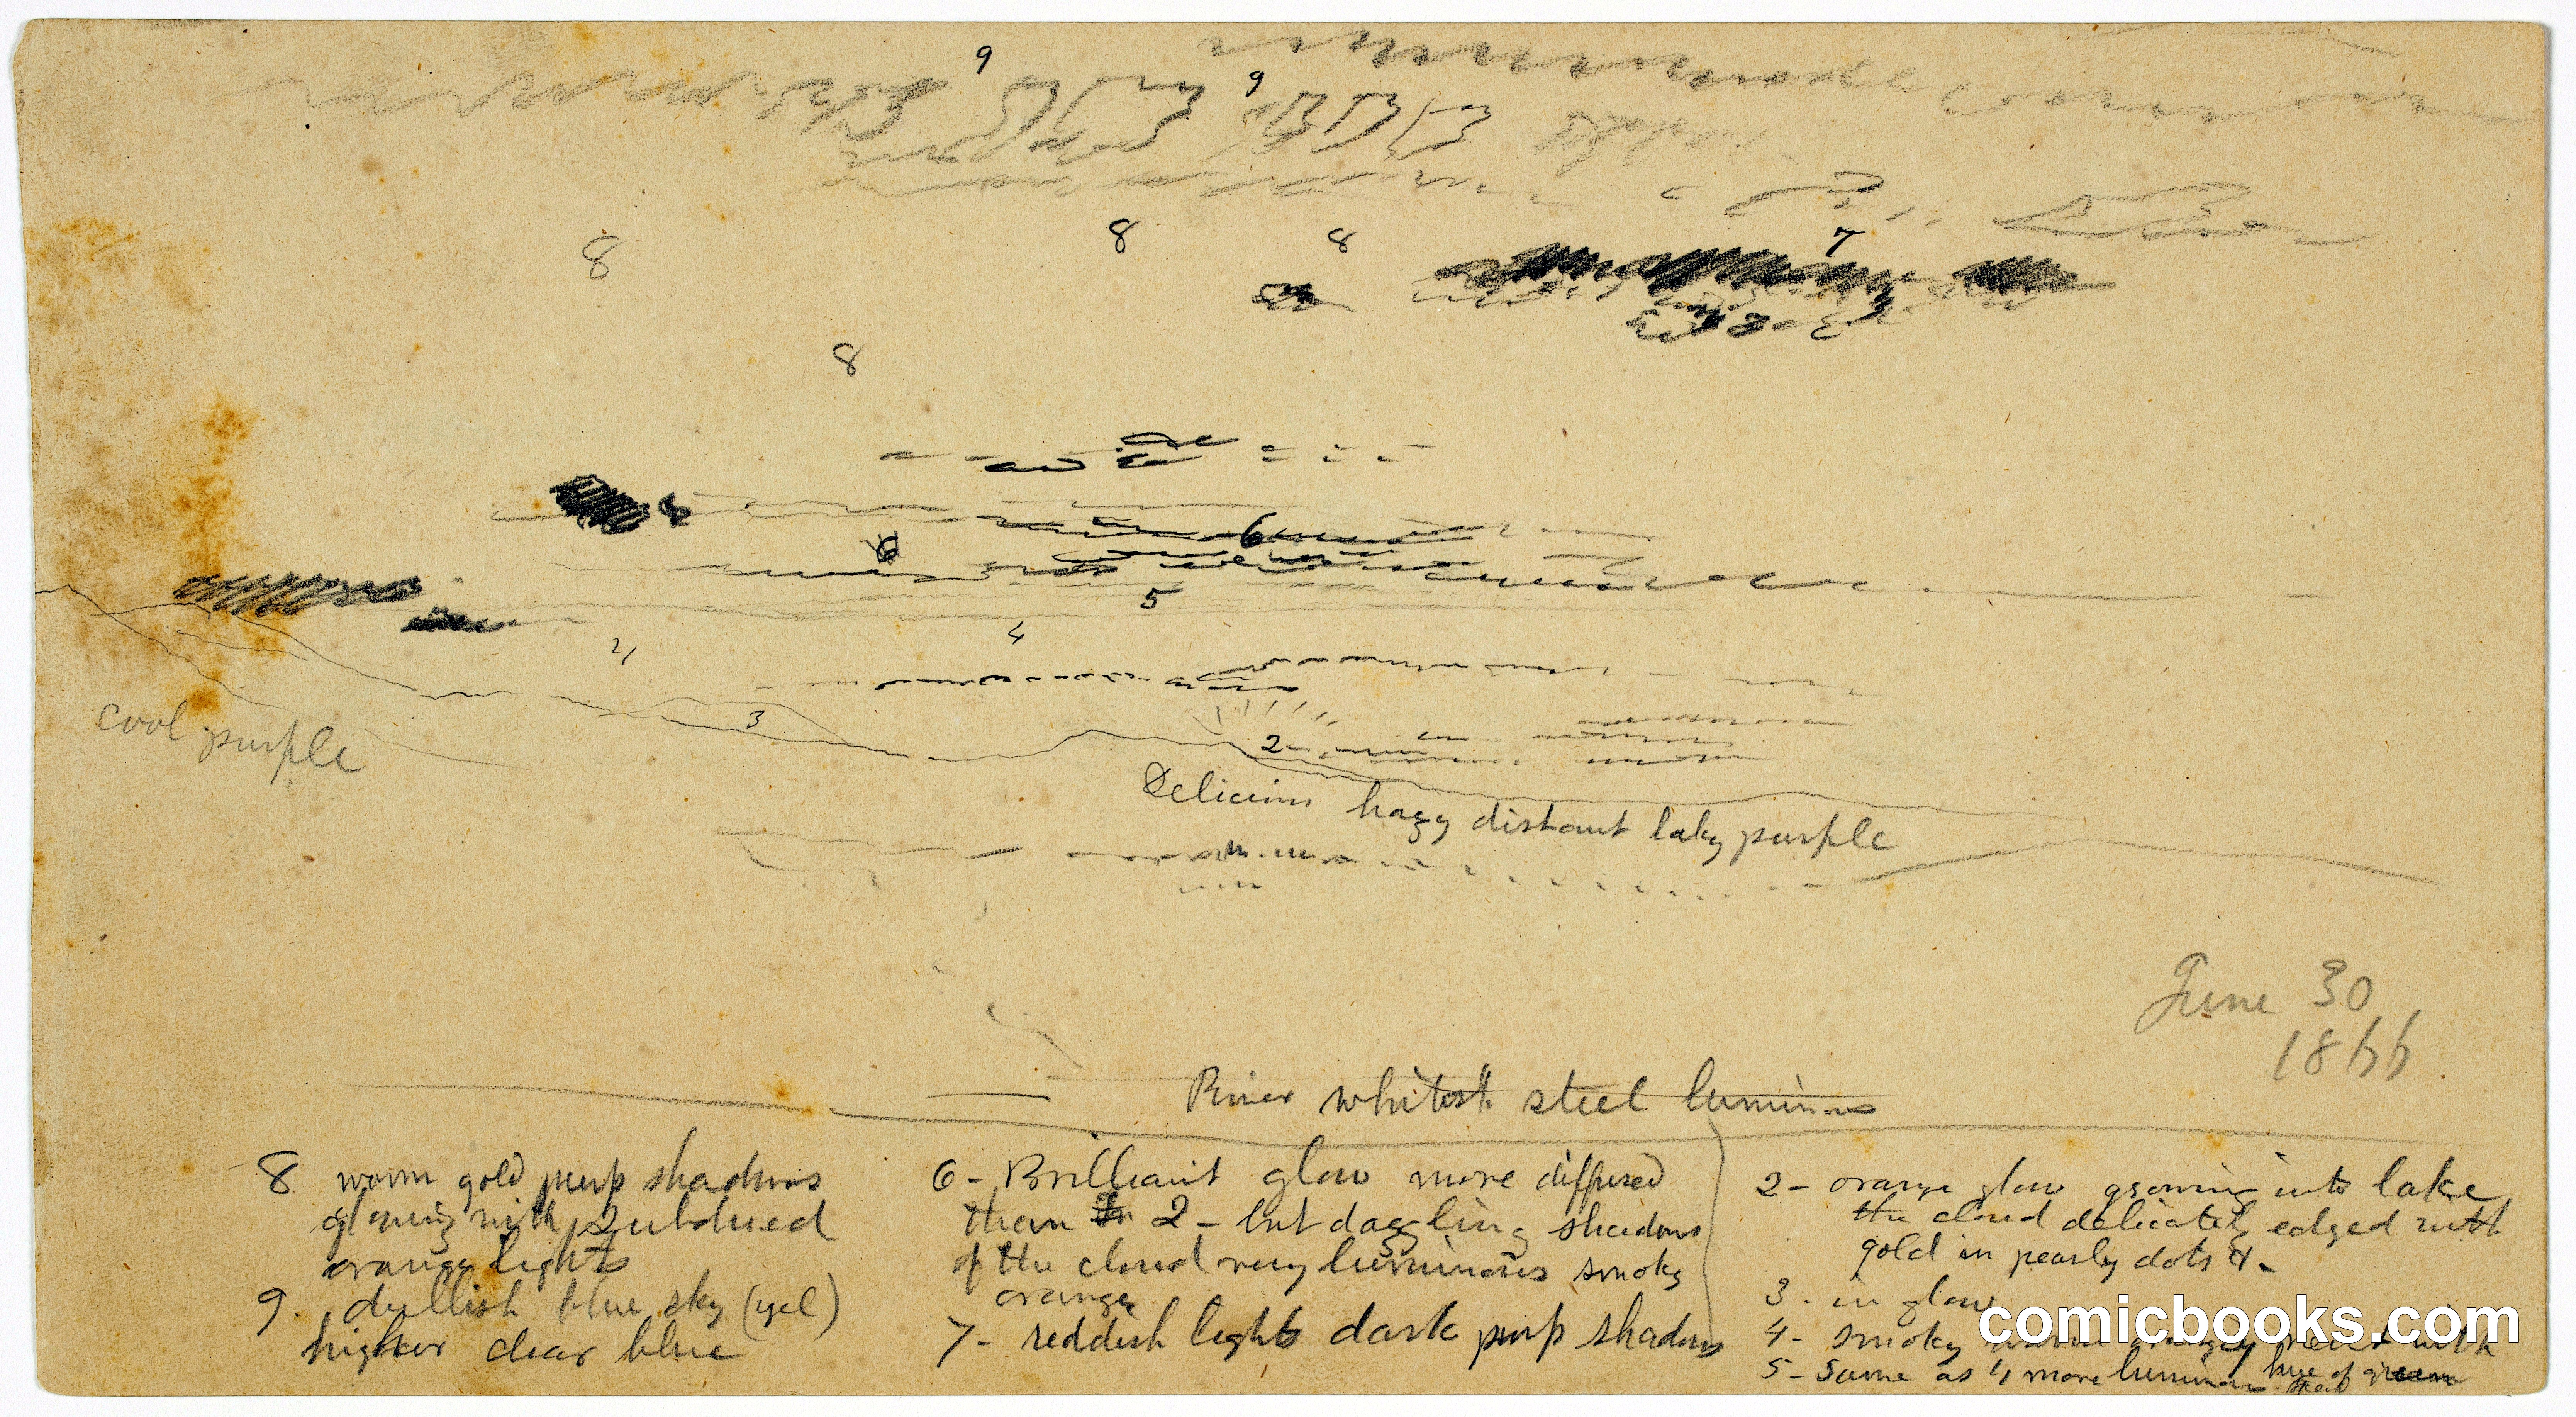 9
9
8
8
8
7
8
6
6
5
4
4
3
2
cool purple
hazy distant laky purple
June 30
1866
River whitish steel luminous
8 warm gold purp shadows
glowing with subdued
orange lights
9. dullish blue sky (yel)
higher clear blue
6 - Brilliant glow more diffused
than in 2 - but dazzling shadows
of the cloud very luminous smoky
orange
7 - reddish lights dark purp shadows
2 - orange glow into lake
the cloud delicately edged with
gold in pearly dots &
3 - in glow
4 - smoky warm with
5 - Same as 4 more luminous hue of green
comicbooks.com